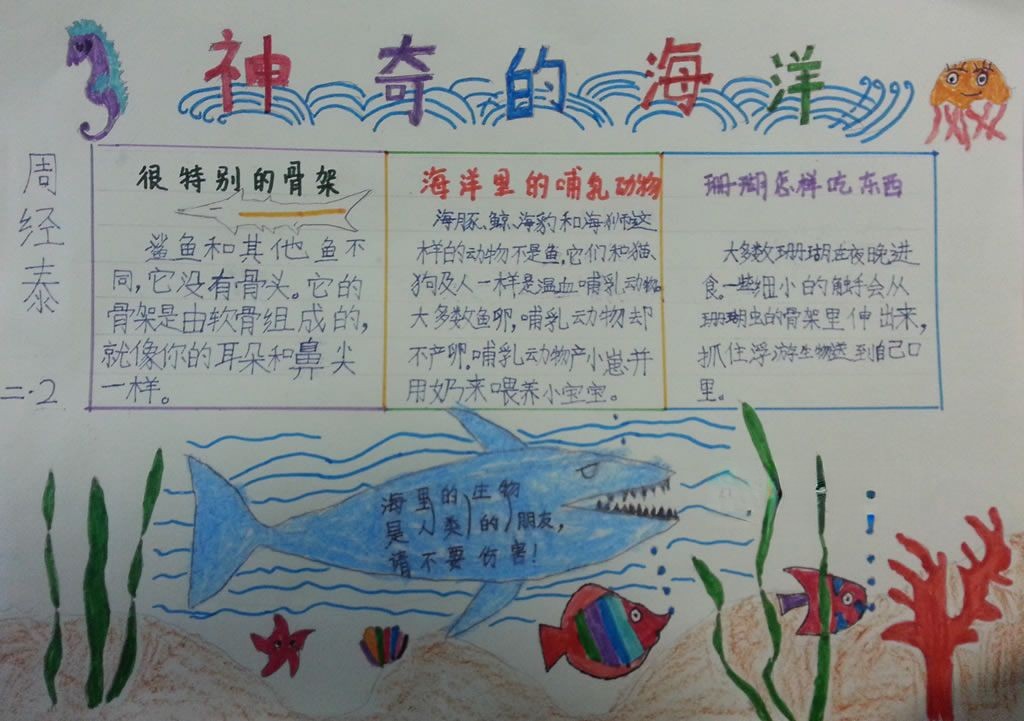 神奇的海洋
周经泰
二·2
很特别的骨架
鲨鱼和其他鱼不
同,它没有骨头。它的
骨架是由软骨组成的,
就像你的耳朵和鼻尖
一样。
海洋里的哺乳动物
海豚、鲸、海豹和海狮这
样的动物不是鱼,它们和猫、
狗及人一样是温血哺乳动物。
大多数鱼卵,哺乳动物却
不产卵。哺乳动物产小崽并
用奶来喂养小宝宝。
珊瑚怎样吃东西
大多数珊瑚在夜晚进
食。一些细小的触手会从
珊瑚虫的骨架里伸出来,
抓住浮游生物送到自己口
里。
海里的生物
是人类的朋友,
请不要伤害!